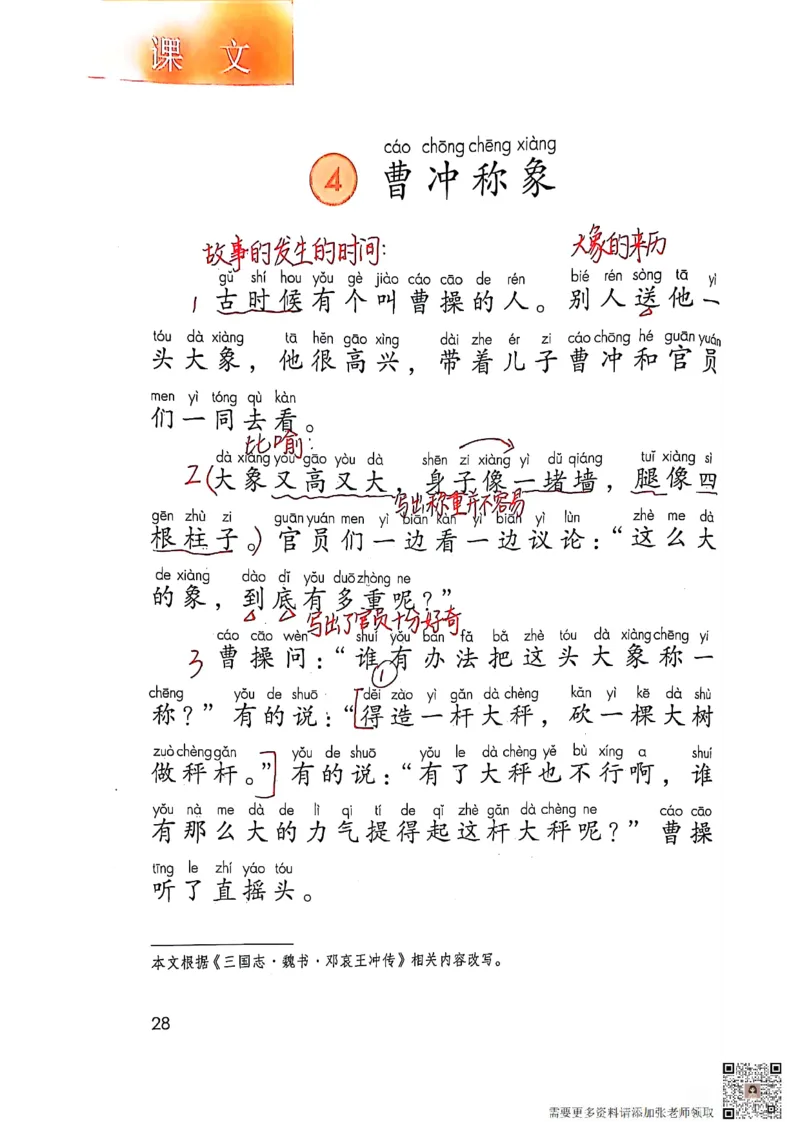 课 文
cáo chōng chēng xiàng
4 曹冲称象
故事的发生的时间: 大象的来历
gǔ shí hou yǒu gè jiào cáo cāo de rén bié rén sòng tā yì
1 古时候有个叫曹操的人。别人送他一
tóu dà xiàng tā hěn gāo xìng dài zhe ér zi cáo chōng hé guān yuán
头大象，他很高兴，带着儿子曹冲和官员
men yì tóng qù kàn
们一同去看。
比喻:
dà xiàng yòu gāo yòu dà shēn zi xiàng yì dǔ qiáng tuǐ xiàng sì
2(大象又高又大，身子像一堵墙，腿像四
写出称重并不容易
gēn zhù zi guān yuán men yì biān kàn yì biān yì lùn zhè me dà
根柱子。)官员们一边看一边议论：“这么大
de xiàng dào dǐ yǒu duō zhòng ne
的象，到底有多重呢？”
写出了官员十分好奇
cáo cāo wèn shuí yǒu bàn fǎ bǎ zhè tóu dà xiàng chēng yi
3 曹操问：“谁有办法把这头大象称一
①
chēng yǒu de shuō děi zào yì gǎn dà chèng kǎn yì kē dà shù
称？”有的说：“[得造一杆大秤，砍一棵大树
zuò chèng gǎn yǒu de shuō yǒu le dà chèng yě bù xíng a shuí
做秤杆。”]有的说：“有了大秤也不行啊，谁
yǒu nà me dà de lì qi tí de qǐ zhè gǎn dà chèng ne cáo cāo
有那么大的力气提得起这杆大秤呢？”曹操
tīng le zhí yáo tóu
听了直摇头。
本文根据《三国志·魏书·邓哀王冲传》相关内容改写。
28
需要更多资料请添加张老师领取